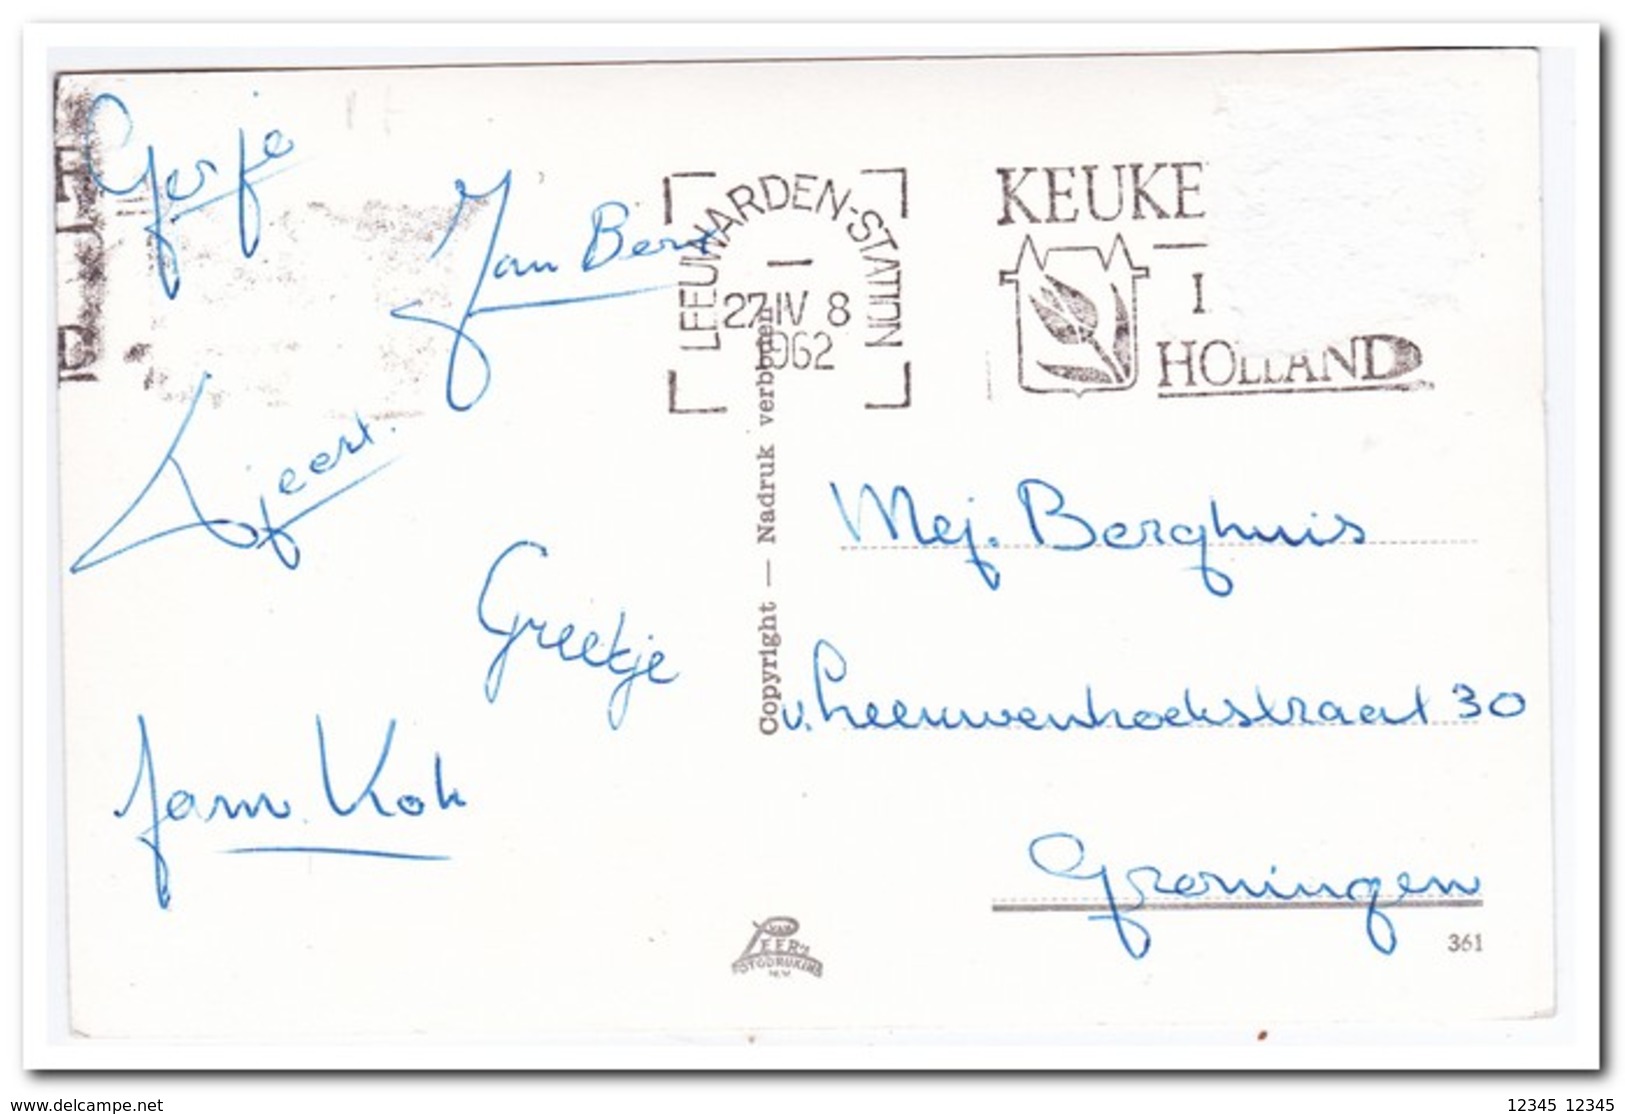 Gerje
Jan Bert
Sjeert.
Greetje
Jam Kok
LEEUWARDEN-STATION
27-IV 8
1962
KEUKE
I
HOLLAND
Copyright — Nadruk verboden
Mej. Berghuis
v. Leeuwenhoekstraat 30
Groningen
361
VAN
LEER'S
FOTODRUKIND.
N.V.
www.delcampe.net
12345 12345